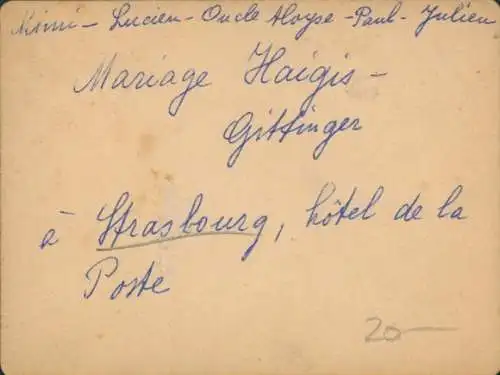 Mimi - Lucien - Oncle Aloyse - Paul - Julien
Mariage Haigis -
Gittinger
à Strasbourg, hôtel de la
Poste
20 -